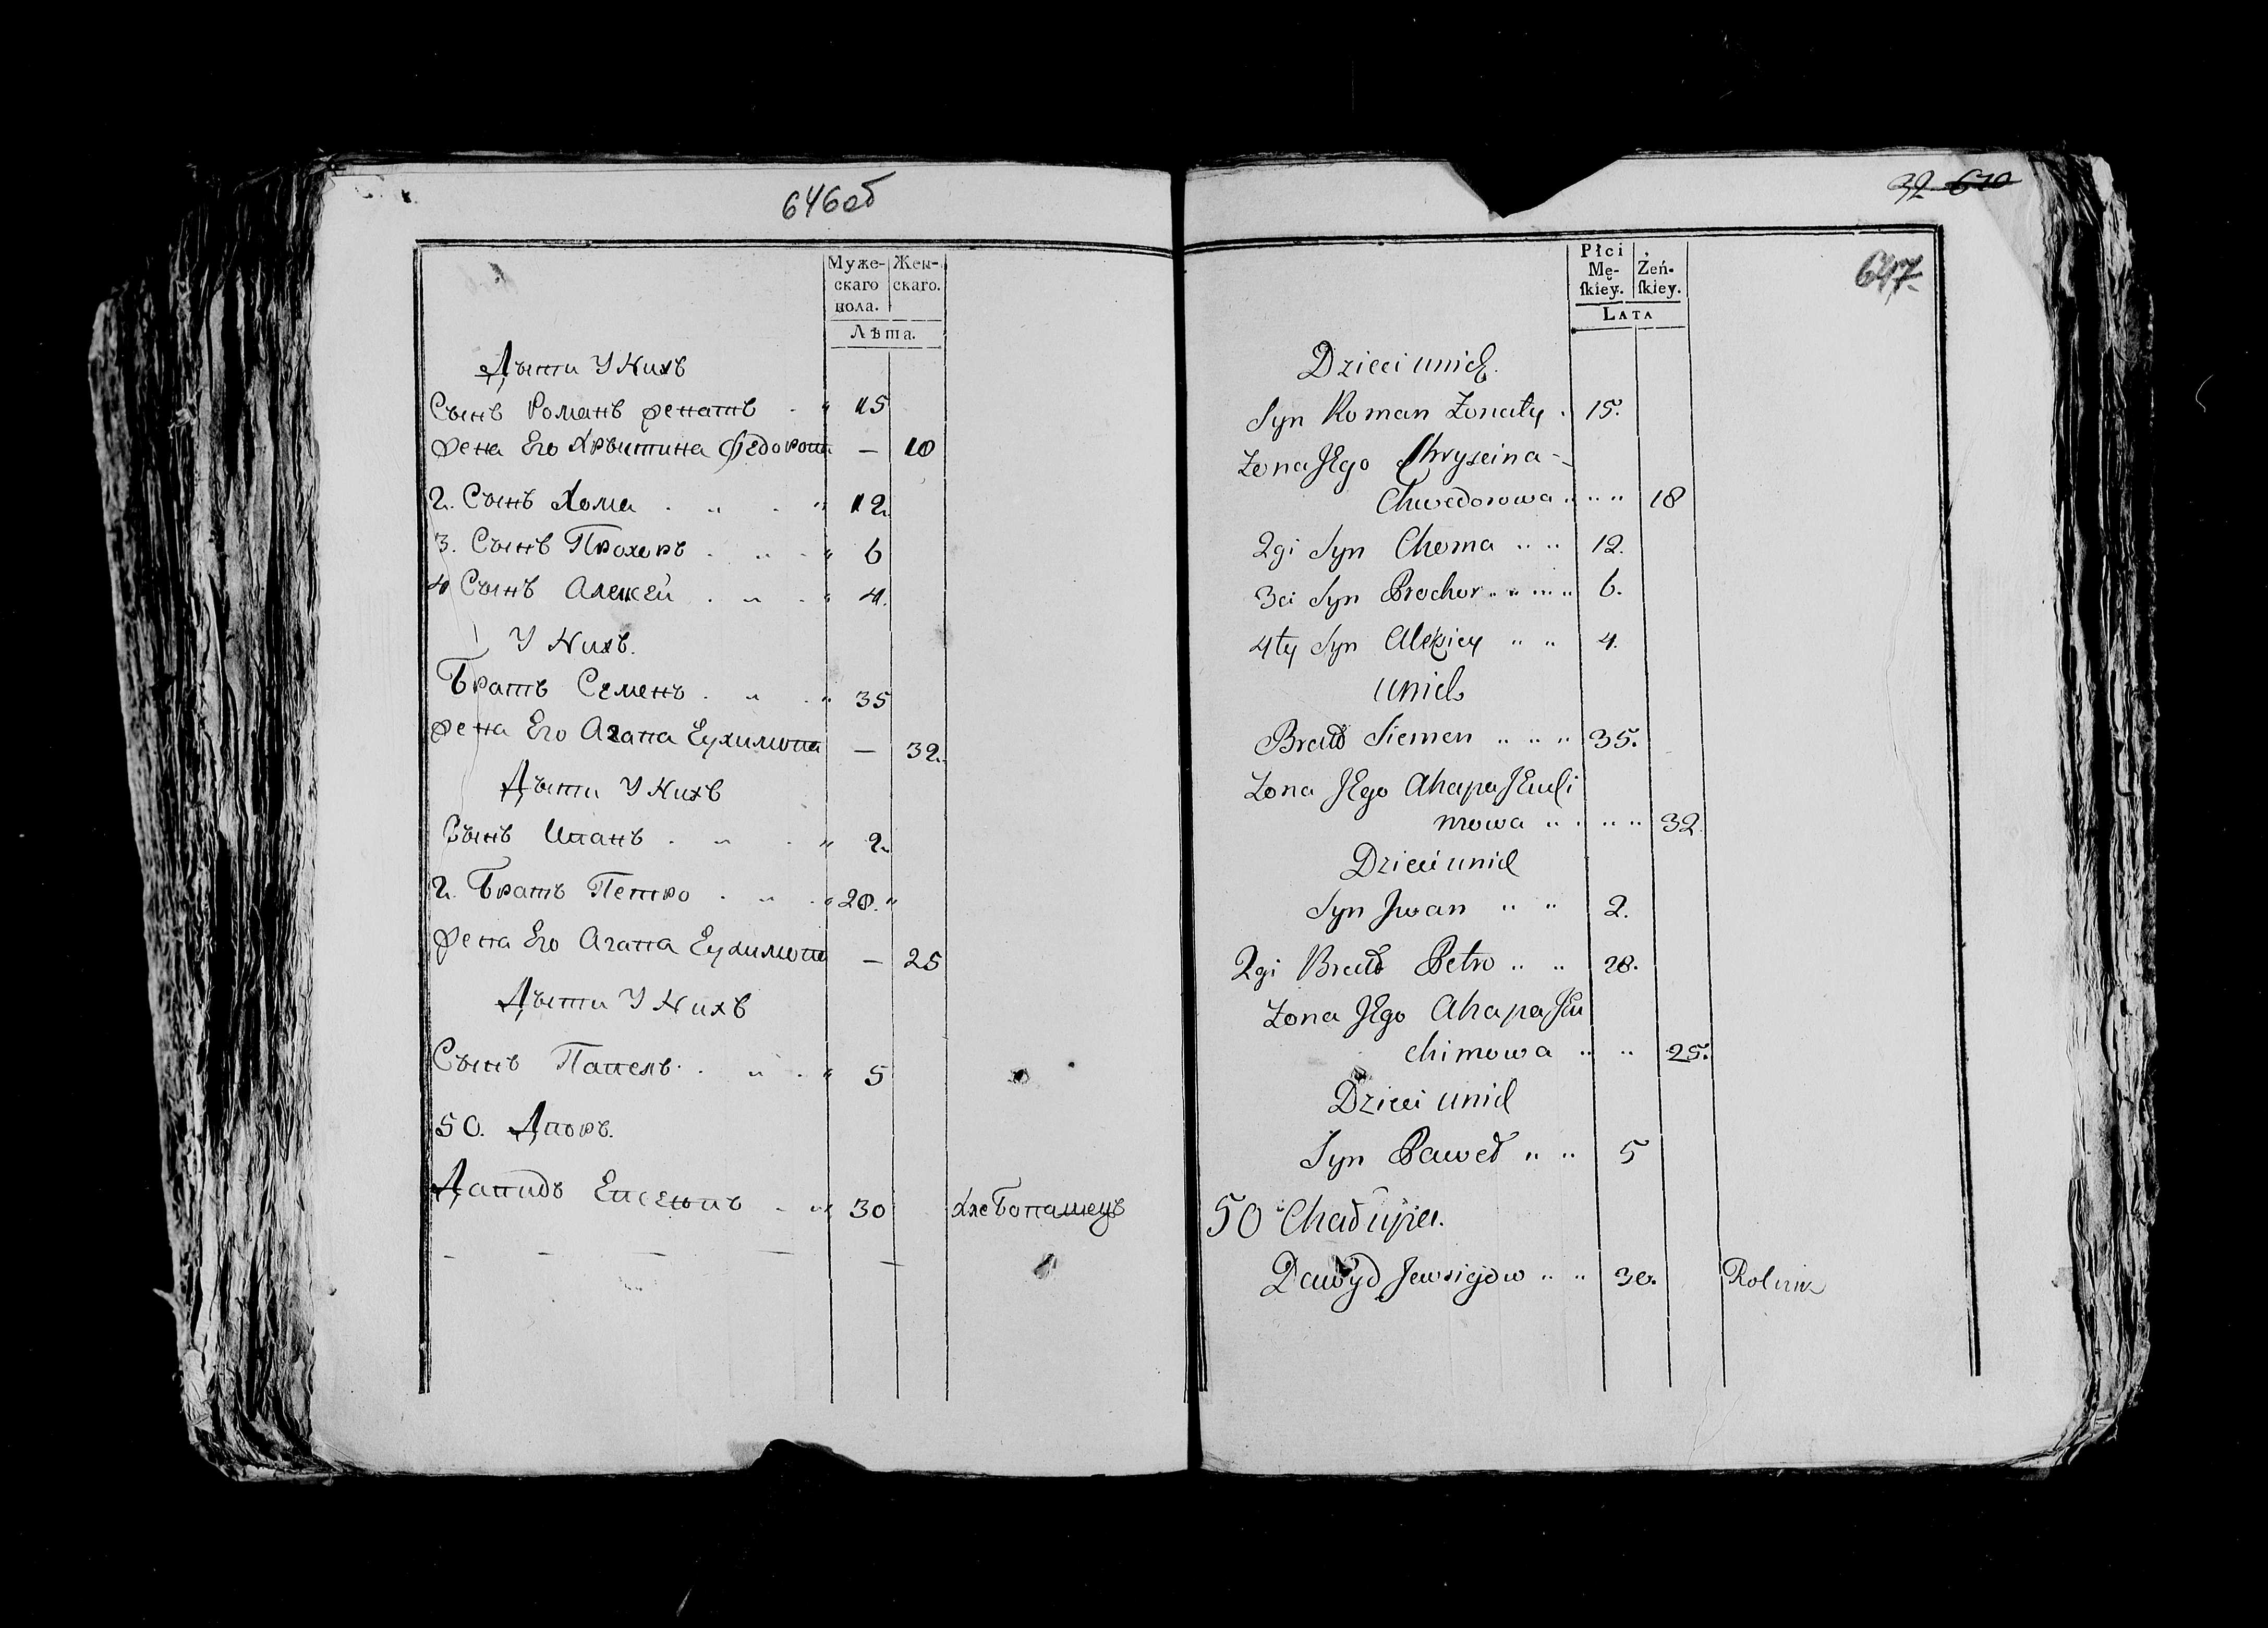 646об
Муже- Жен-
скаго скаго.
пола.
Лѣта.
Дѣти У Нихъ
Сынъ Романъ женатъ . " 15
Жена Его Христина Федорова — 18
2. Сынъ Хома . " . " 12
3. Сынъ Прохоръ . " . " 6
4 Сынъ Алексей . " . " 4.
У Нихъ.
Братъ Семенъ . " . " 35
Жена Его Агапа Еухимова — 32
Дѣти У Нихъ
Сынъ Иванъ . " . " 2
2. Братъ Петро . " . " 28. "
Жена Его Агапа Еухимова — 25
Дѣти У Нихъ
Сынъ Павелъ . " . " 5
50. Дворъ.
Давидъ Евсеювъ . " 30 хлебопашецъ
32 620
647
Płci
Mę- Żeń-
ſkiey. ſkiey.
LATA
Dzieci unich.
Syn Roman Żonaty . 15.
Żona JEgo Chryscina -
Chwedorowa " " " 18
2gi Syn Choma " " 12.
3ci Syn Prochor " " " " 6.
4ty Syn Alexiey " " 4.
unich
Bratt Siemen " " " 35.
Żona JEgo Ahapa JEuchi
mowa " " " " 32
Dzieci unich
Syn Jwan " " 2.
2gi Bratt Petro " " 28.
Żona JEgo Ahapa JEu
chimowa " " 25.
Dzieci unich
Syn Paweł " " 5
50 Chałupa.
Dawyd Jewsiejow " " 30. Rolnik